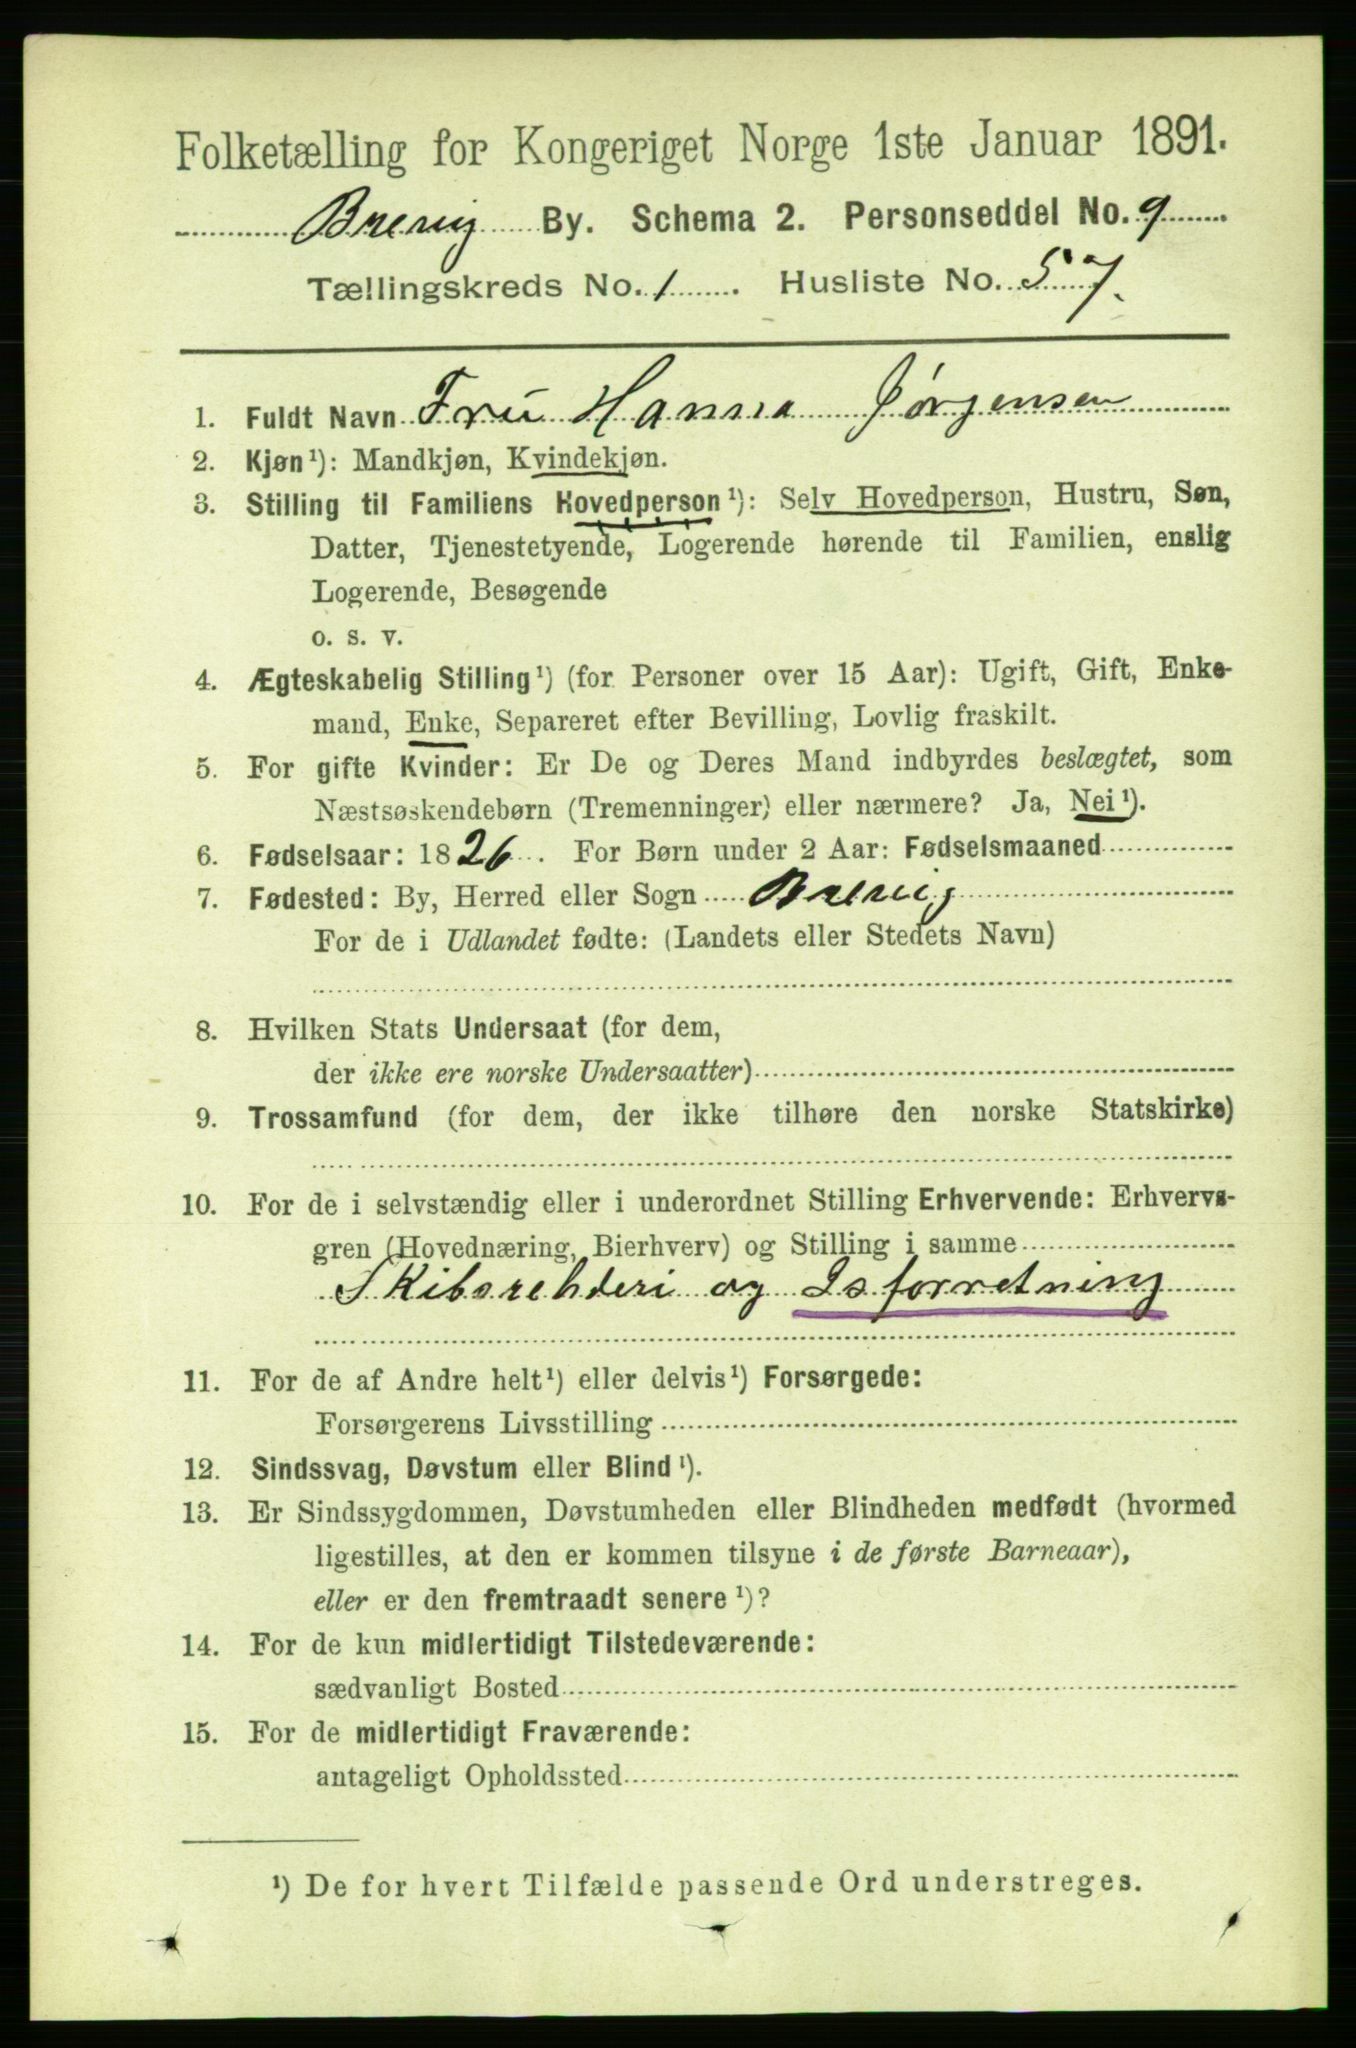 Folketælling for Kongeriget Norge 1ste Januar 1891.
Brevig By. Schema 2. Personseddel No. 9
Tællingskreds No. 1. Husliste No. 57.
1. Fuldt Navn Fru Hanna Jørgensen
2. Kjøn¹): Mandkjøn, Kvindekjøn.
3. Stilling til Familiens Hovedperson¹): Selv Hovedperson, Hustru, Søn,
Datter, Tjenestetyende, Logerende hørende til Familien, enslig
Logerende, Besøgende
o. s. v.
4. Ægteskabelig Stilling¹) (for Personer over 15 Aar): Ugift, Gift, Enke-
mand, Enke, Separeret efter Bevilling, Lovlig fraskilt.
5. For gifte Kvinder: Er De og Deres Mand indbyrdes beslægtet, som
Næstsøskendebørn (Tremenninger) eller nærmere? Ja, Nei¹).
6. Fødselsaar: 1826. For Børn under 2 Aar: Fødselsmaaned
7. Fødested: By, Herred eller Sogn Brevig
For de i Udlandet fødte: (Landets eller Stedets Navn)
8. Hvilken Stats Undersaat (for dem,
der ikke ere norske Undersaatter)
9. Trossamfund (for dem, der ikke tilhøre den norske Statskirke)
10. For de i selvstændig eller i underordnet Stilling Erhvervende: Erhvervs-
gren (Hovednæring, Bierhverv) og Stilling i samme
Skibsrehderi og Isforretning
11. For de af Andre helt¹) eller delvis¹) Forsørgede:
Forsørgerens Livsstilling
12. Sindssvag, Døvstum eller Blind¹).
13. Er Sindssygdommen, Døvstumheden eller Blindheden medfødt (hvormed
ligestilles, at den er kommen tilsyne i de første Barneaar),
eller er den fremtraadt senere¹)?
14. For de kun midlertidigt Tilstedeværende:
sædvanligt Bosted
15. For de midlertidigt Fraværende:
antageligt Opholdssted
¹) De for hvert Tilfælde passende Ord understreges.